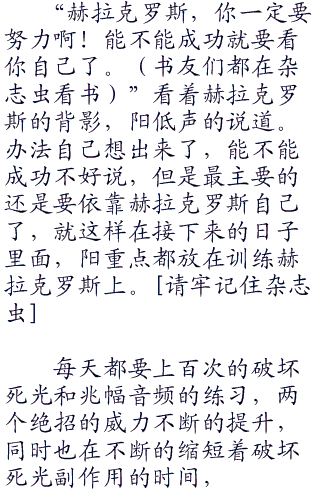 “赫拉克罗斯，你一定要
努力啊！能不能成功就要看
你自己了。（书友们都在杂
志虫看书）”看着赫拉克罗
斯的背影，阳低声的说道。
办法自己想出来了，能不能
成功不好说，但是最主要的
还是要依靠赫拉克罗斯自己
了，就这样在接下来的日子
里面，阳重点都放在训练赫
拉克罗斯上。[请牢记住杂志
虫]
每天都要上百次的破坏
死光和兆幅音频的练习，两
个绝招的威力不断的提升，
同时也在不断的缩短着破坏
死光副作用的时间，